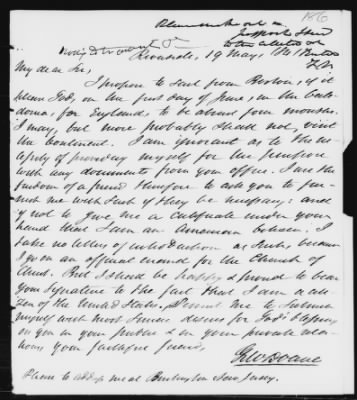 186
Riverside, 19 May, 1841
My dear Sir,
I propose to sail from Boston, if it
please God, on the first day of June, in the Caledonia,
for England, to be absent four months.
I may, but more probably shall not, visit
the Continent. I am ignorant as to the necessity
of providing myself for the purpose
with any documents from your office. I use the
freedom of a friend therefore to ask you to furnish
me with such if they be necessary: and
if not to give me a certificate under your
hand that I am an American citizen. I
take no letters of introduction as such, because
I go on an official errand for the Church of
Christ. But I should be happy & proud to bear
your signature to the fact that I am a citizen
of the United States. Permit me to subscribe
myself with most sincere desires for God's blessing
on you in your public & in your private relations,
your faithful friend,
G W Doane
Please to address me at Burlington New Jersey.